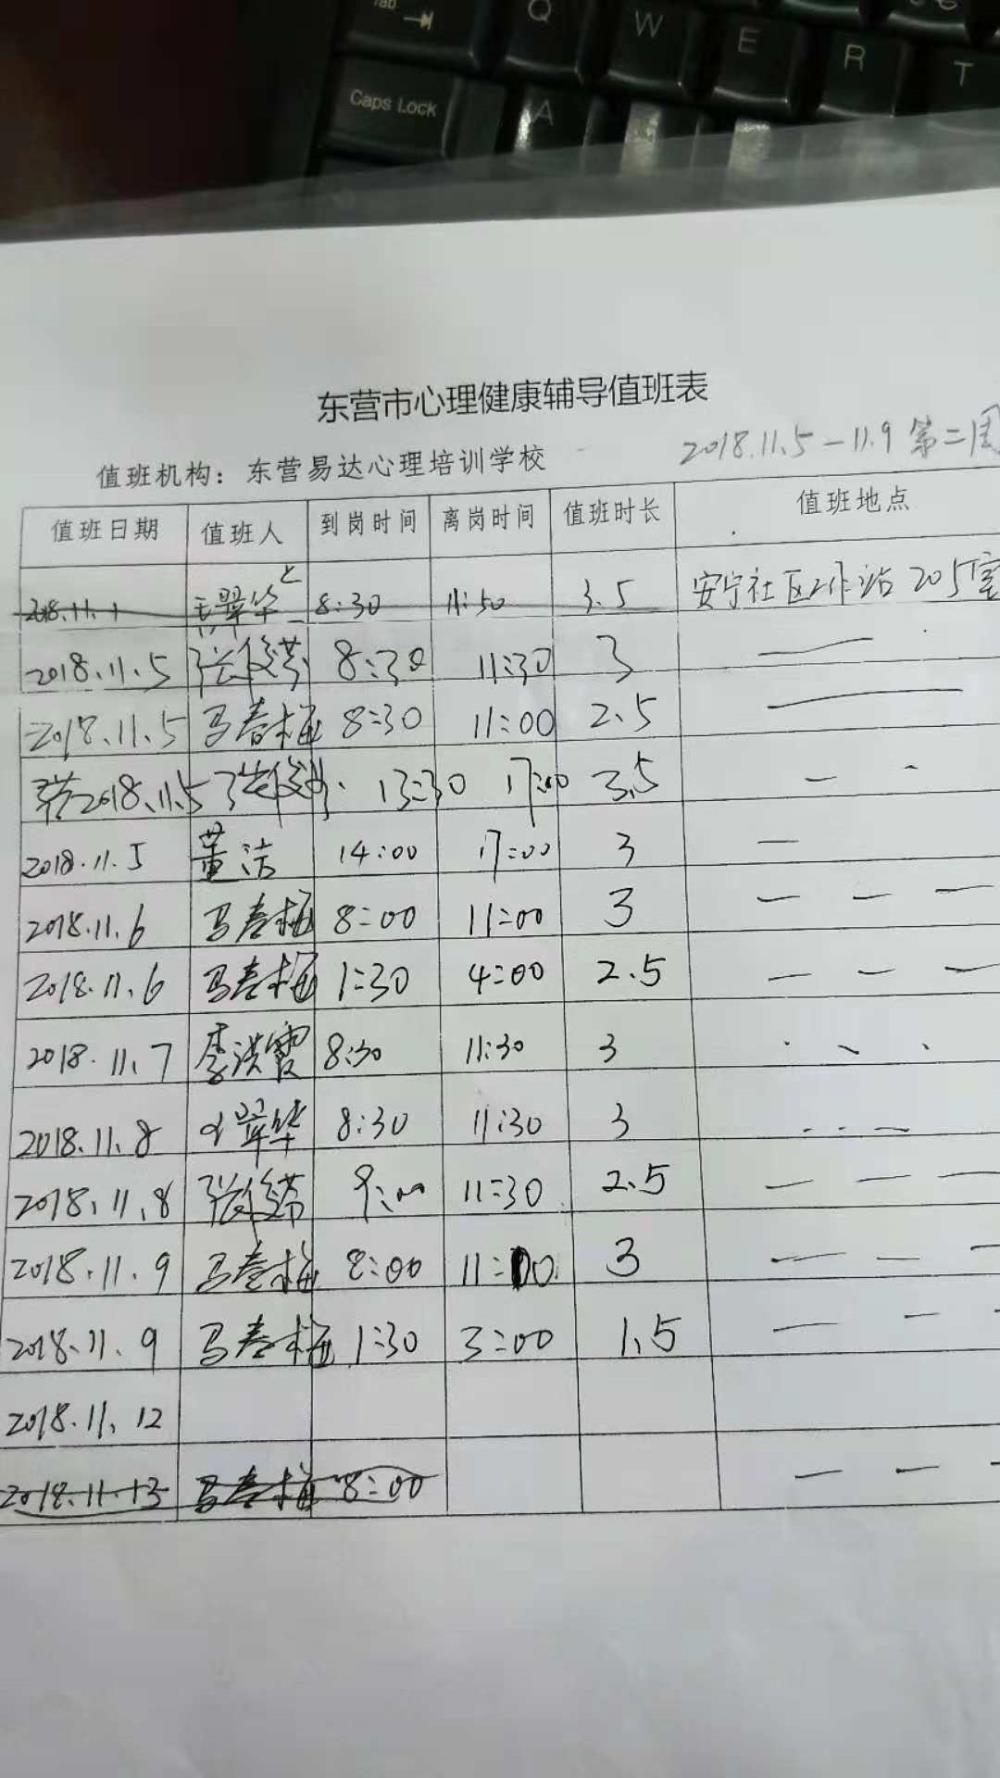 Tab
Q W E R T
Caps Lock A
东营市心理健康辅导值班表
2018.11.5－11.9 第二周
值班机构：东营易达心理培训学校
值班日期 值班人 到岗时间 离岗时间 值班时长 值班地点
2018.11.1 翠华 8:30 11:50 3.5 安宁社区工作站 205室
2018.11.5 8:30 11:30 3 —
2018.11.5 马春梅 8:30 11:00 2.5 —
2018.11.5 13:30 17:00 3.5 —
2018.11.5 董洁 14:00 17:00 3 —
2018.11.6 马春梅 8:00 11:00 3 — — —
2018.11.6 马春梅 1:30 4:00 2.5 — — —
2018.11.7 李洪霞 8:30 11:30 3
2018.11.8 翠华 8:30 11:30 3
2018.11.8 9:00 11:30 2.5 — — —
2018.11.9 马春梅 8:00 11:00 3 — — —
2018.11.9 马春梅 1:30 3:00 1.5 — —
2018.11.12
2018.11.13 马春梅 8:00 — — —